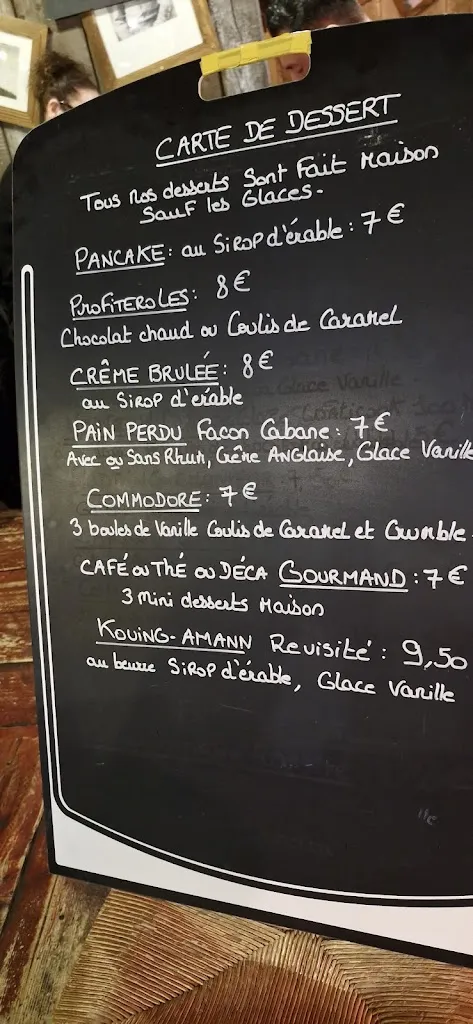 CARTE DE DESSERT
Tous nos desserts Sont Fait Maison
Sauf les Glaces.
PANCAKE: au SiROP d'érable: 7€
PROFITEROLES: 8€
Chocolat chaud ou Coulis de Caramel
CRÊME BRULÉE: 8€
au SiROP d'érable
PAIN PERDU Facon Cabane: 7€
Avec ou Sans Rhum, Crême ANGlaise, Glace Vanille
COMMODORE: 7€
3 boules de Vanille Coulis de Caramel et Crumble
CAFÉ ou Thé ou DÉCA GOURMAND: 7€
3 Mini desserts Maison
KOUING-AMANN Revisité: 9,50
au beurre SiROP d'érable, Glace Vanille